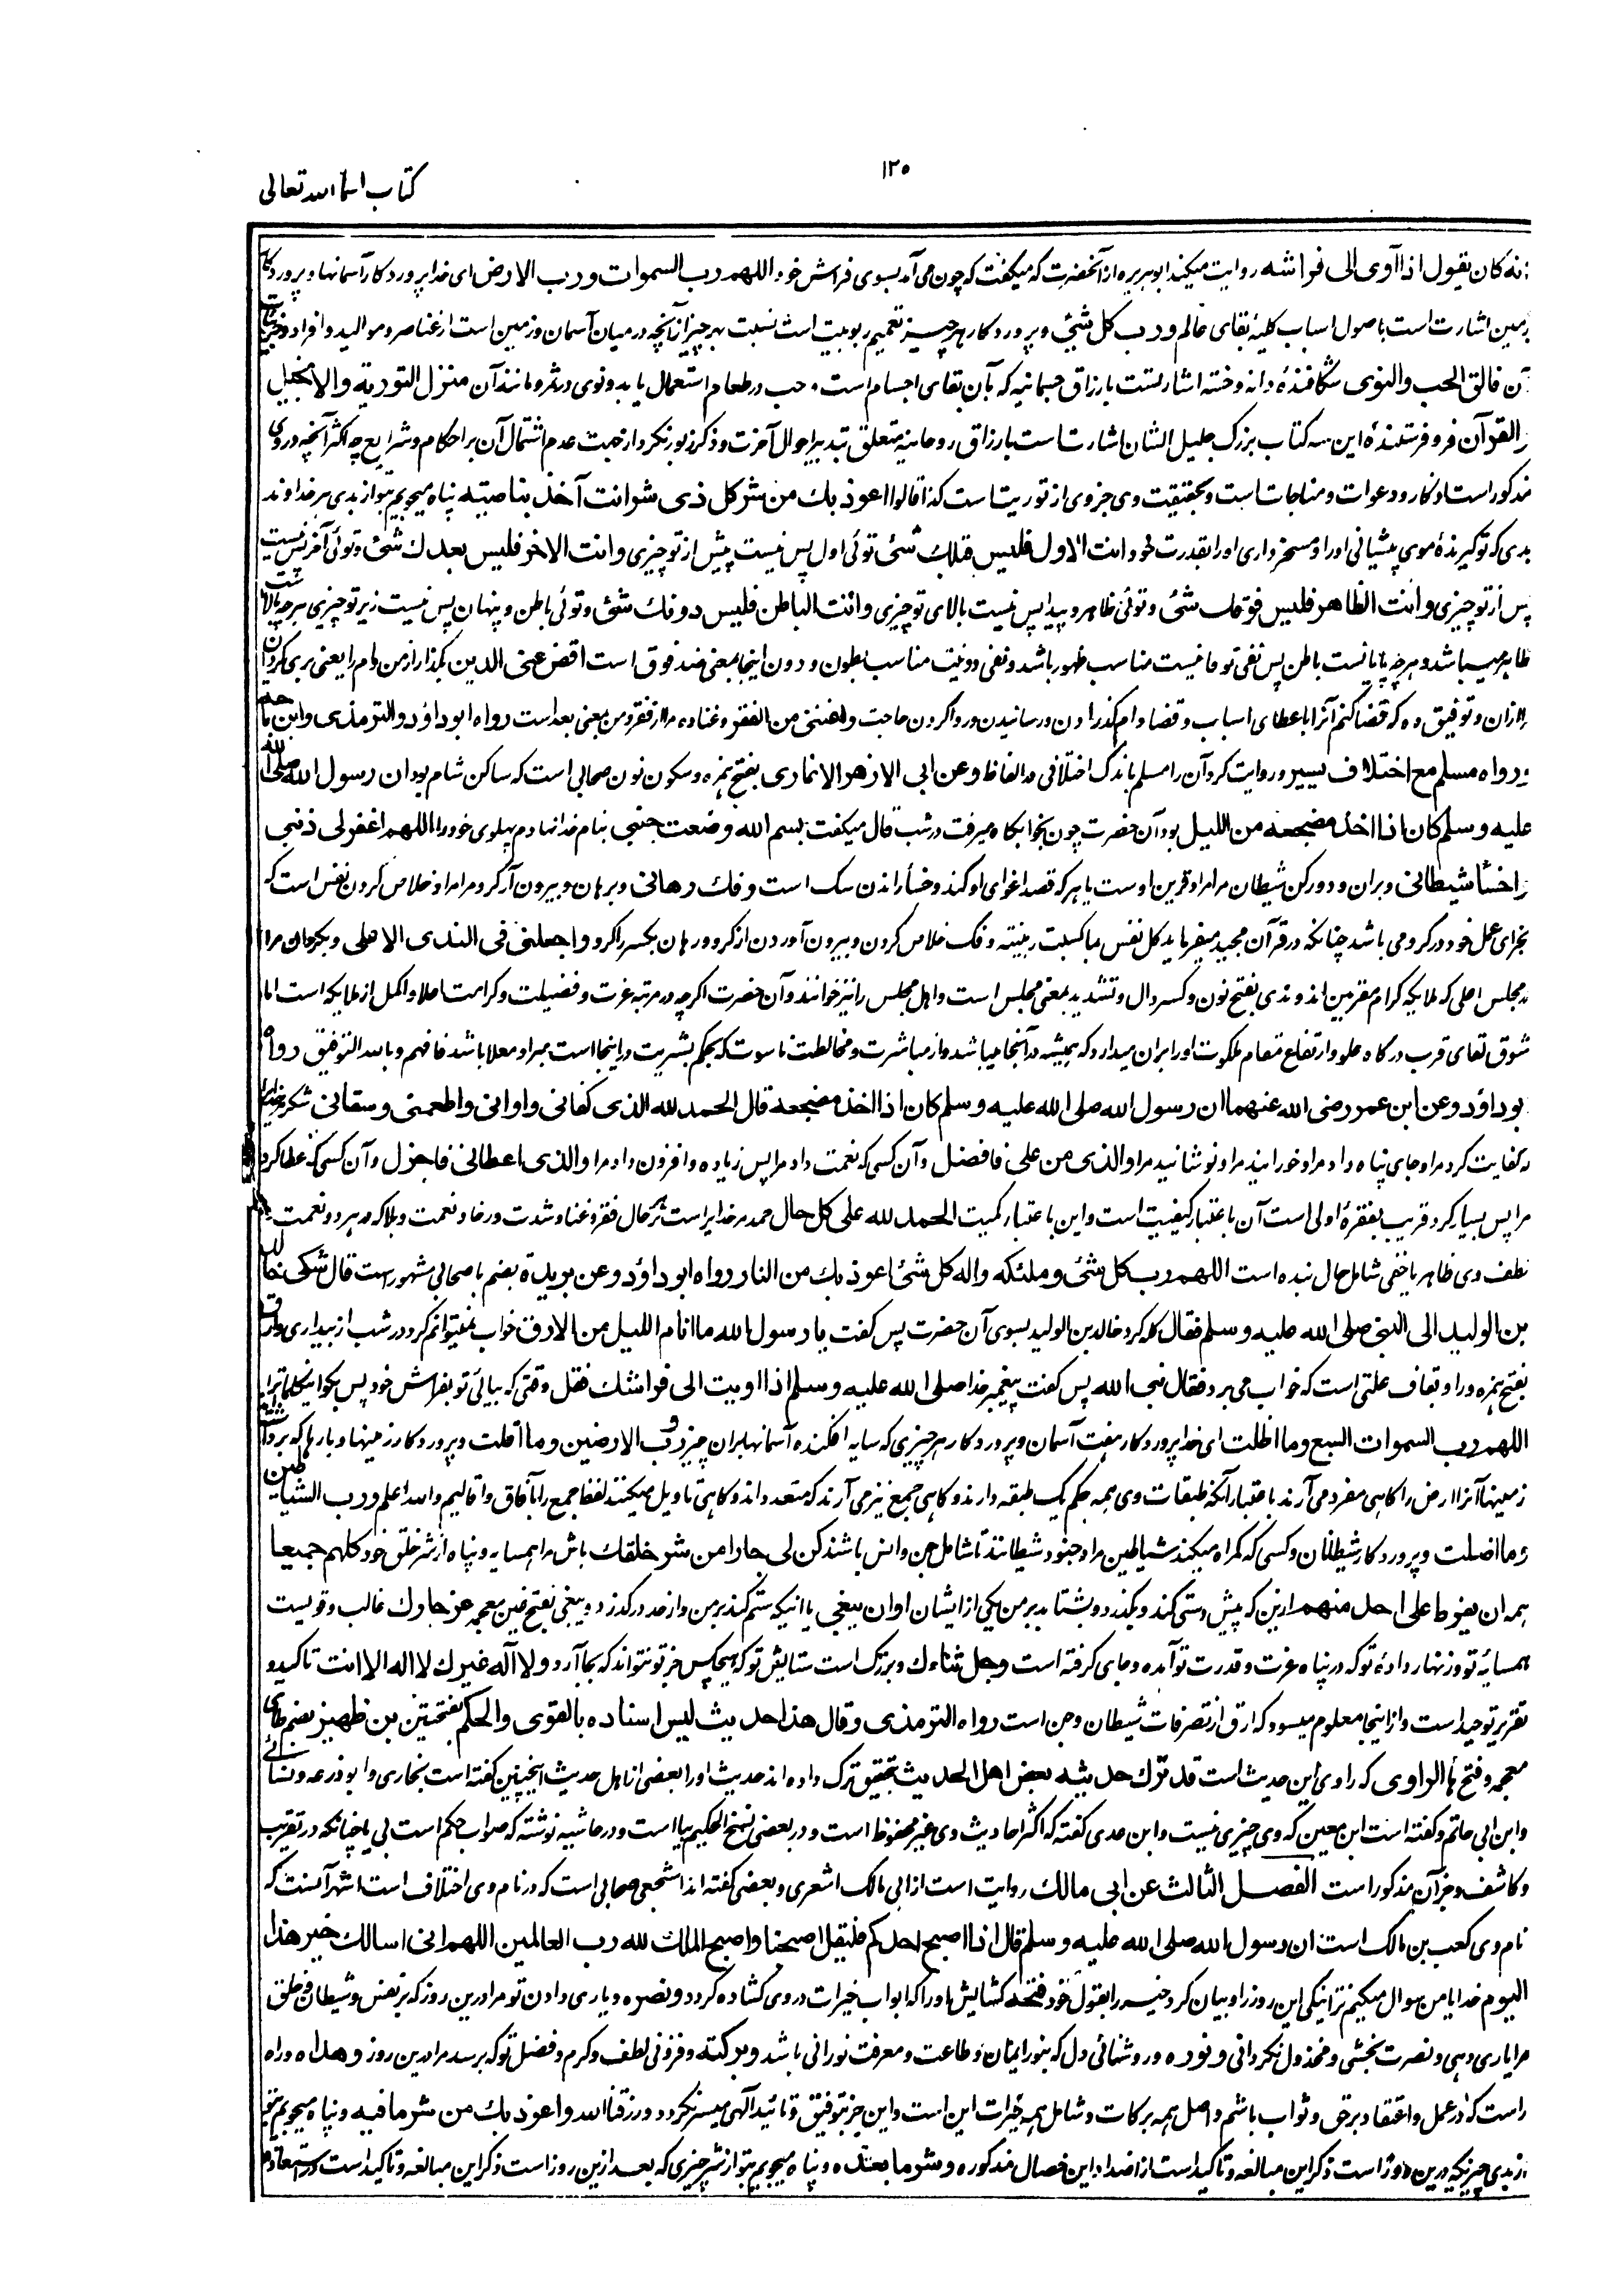 ١٢٥
كتاب اسماء الله تعالى
انه كان يقول اذا آوى الى فراشه روایت میکند ابوهریره از آنحضرت که میگفت که چون می آمد بسوی فراش خود اللهم رب السموات و رب الارض ای خدا پروردگار آسمانها و پروردگار
زمین اشارت است باصول اسباب کلیهٔ بقای عالم و رب كل شئ و پروردگار هر چیز تعمیم ربوبیت است نسبت بهر چیز از آنچه در میان آسمان و زمین است از عناصر و موالید و افراد و جزئیات
آن فالق الحب والنوى شگافندهٔ دانه و خسته اشارتست بارزاق جسمانیه که بآن بقای اجسام است ٠ حب در طعام استعمال یابد و نوی در ثمر و مانند آن منزل التورية والانجيل
والقرآن فرو فرستندهٔ این سه کتاب بزرگ جلیل الشان اشارتست بارزاق روحانیه متعلق تبدبیر احوال آخرت و ذکر زبور نکرد از جهت عدم اشتمال آن بر احکام و شرایع چه اکثر آنچه در وی
مذکور است اذکار و دعوات و مناجات است و بحقیقت وی جزوی از توریت است کذا قالوا اعوذ بك من شر كل ذى شر انت آخذ بناصيته پناه میجویم بتو از بدی هر خداوند
بدی که تو گیرندهٔ موی پیشانی اورا و مسخر داری اورا بقدرت خود انت الاول فليس قبلك شئ توئی اول پس نیست پیش از تو چیزی وانت الاخر فليس بعدك شئ و توئی آخر پس نیست
پس از تو چیزی وانت الظاهر فليس فوقك شئ و توئی ظاهر و پیدا پس نیست بالای تو چیزی وانت الباطن فليس دونك شئ و توئی باطن و پنهان پس نیست زیر تو چیزی هر چه بالا ست
ظاهر میباشد و هر چه پایانست باطن پس نفی فوقانیت مناسب ظهور باشد و نفی دونیت مناسب بطون و دون اینجا بمعنی ضد فوق است اقض عنى الدين بگذار از من وام را یعنی بری گردان
مرا از ان و توفیق ده که قضا کنم آنرا باعطای اسباب و قضا وام گذرا دن و رسانیدن و روا کردن حاجت واغننى من الفقر و غنا ده مرا از فقر و من بمعنی بعد است رواه ابو داؤد والترمذى وابن ماجه
ورواه مسلم مع اختلاف يسير و روایت کرد آن را مسلم باندک اختلافی در الفاظ وعن ابى الازهر الانمارى بفتح همزه و سکون نون صحابی است که ساکن شام بود ان رسول الله صلى الله
عليه وسلم كان اذا اخذ مضجعه من الليل بود آن حضرت چون بخوابگاه میرفت در شب قال میگفت بسم الله وضعت جنبى بنام خدا نهادم پهلوی خود را اللهم اغفرلى ذنبى
واخسأ شيطانى و بران و دور کن شیطان مرا مراد قرین اوست یا هر که قصد اغوای او کند و خسأ راندن سگ است وفك رهانى و برهان و بیرون آر گرو مرا مراد خلاص کردن نفس است که
بجزای عمل خود در گرو می باشد چنانکه در قرآن مجید میفرماید کل نفس بما کسبت رهینته و فک خلاص کردن و بیرون آوردن از گرو و رهان بکسر را گرو واجعلنى فى الندى الاعلى و بگردان مرا
در مجلس اعلی که ملایکه کرام مقربین اند و ندی بفتح نون و کسر دال و تشدید بمعنی مجلس است و اهل مجلس را نیز خوانند و آن حضرت اگرچه در مرتبه عزت و فضیلت و کرامت اعلا و اکمل از ملایکه است اما
شوق لقای قرب درگاه علو و ارتفاع مقام ملکوت اورا بران میدارد که همیشه در آنجا میباشد و از مباشرت و مخالطت ناسوت که بحکم بشریت در اینجا است مبرا و معلا باشد فافهم و بالله التوفیق رواه
ابو داؤد وعن ابن عمر رضى الله عنهما ان رسول الله صلى الله عليه وسلم كان اذا اخذ مضجعه قال الحمد لله الذى كفانى واوانى واطعمنى وسقانى شکر مر خدای را
که کفایت کرد مرا و جای پناه داد مرا و خورانید مرا و نوشانید مرا والذى من على فافضل و آن کسی که نعمت داد مرا پس زیاده و افزون داد مرا والذى اعطانى فاجزل و آن کسی که عطا کرد
مرا پس بسیار کرد قریب بفقرهٔ اولی است آن باعتبار کیفیت است و این باعتبار کمیت الحمد لله على كل حال حمد مر خدایراست بر هر حال فقر و غنا و شدت و رخا و نعمت و بلا که در هر دو نعمت
لطف وی ظاهر یا خفی شامل حال بنده است اللهم رب كل شئ ومليكه واله كل شئ اعوذ بك من النار رواه ابو داؤد وعن بريدة بضم با صحابی مشهور است قال شكى خالد
بن الوليد الى النبى صلى الله عليه وسلم فقال گله کرد خالد بن الولید بسوی آن حضرت پس گفت يا رسول الله ما انام الليل من الارق خواب نمیتوانم کرد در شب از بیداری وارق
بفتح همزه و را و بقاف علتی است که خواب می برد فقال نبى الله پس گفت پیغمبر خدا صلى الله عليه وسلم اذا اويت الى فراشك فقل وقتی که بیائی تو بفراش خود پس بگو این کلمات را
اللهم رب السموات السبع وما اظلت ای خدا پروردگار هفت آسمان و پروردگار هر چیزی که سایه افگنده آسمانها بران چیز ورب الارضين وما اقلت و پروردگار زمینها و بارها که برداشته
زمینها آنرا ارض را گاهی مفرد می آرند باعتبار آنکه طبقات وی همه حکم یک طبقه دارند و گاهی جمع نیز می آرند که متعدد اند و گاهی تاویل میکنند لفظ جمع را بآفاق و اقالیم والله اعلم ورب الشياطين
وما اضلت و پروردگار شیطانان و کسی که گمراه میکند شیاطین مراد جنود شیطانند تا شامل جن و انس باشند كن لى جارا من شر خلقك باش مرا همسایه و پناه از شر خلق خود كلهم جميعا
همه ان يفرط على احد منهم از ین که پیش دستی کند و بگذرد و بشتابد بر من یکی از ایشان او ان يبغى یا اینکه ستم کند بر من و از حد در گذرد و یبغی بفتح غین معجمه عز جارك غالب و قویست
همسایهٔ تو و زنهار دادهٔ تو که در پناه عزت و قدرت تو آمده و جای گرفته است وجل ثناءك و بزرگ است ستایش تو که هیچکس جز تو نتواند که بجا آرد ولا اله غيرك لا اله الا انت تاکید و
تقریر توحید است و از اینجا معلوم میسود که ارق از تصرفات شیطان و جن است رواه الترمذى وقال هذا حديث ليس اسناده بالقوى والحكم بفتحتین بن ظهير بضم ظای
معجمه و فتح ها الراوى که راوی این حدیث است قد ترك حديثه بعض اهل الحديث بتحقیق ترک داده اند حدیث اورا بعضی از اهل حدیث اینچنین گفته است بخاری و ابو زرعه و نسائی
وابن ابی حاتم و گفته است ابن معین که وی چیزی نیست و ابن عدی گفته که اکثر احادیث وی غیر محفوظ است و در بعضی نسخ الحکیم بیا است و در حاشیه نوشته که صواب حکم است بی یا چنانکه در تقریب
و کاشف و جز آن مذکور است الفصل الثالث عن ابى مالك روایت است از ابی مالک اشعری و بعضی گفته اند اشجعی صحابی است که در نام وی اختلاف است اشهر آنست که
نام وی کعب بن مالک است ان رسول الله صلى الله عليه وسلم قال اذا اصبح احدكم فليقل اصبحنا واصبح الملك لله رب العالمين اللهم انى اسالك خير هذا
اليوم خدایا من سوال میکنم ترا نیکی این روز را و بیان کرد خیر را بقول خود فتحه گشایش اورا که ابواب خیرات در وی گشاده گردد ونصره و یاری دادن تو مرا درین روز که بر نفس و شیطان و خلق
مرا یاری دهی و نصرت بخشی و مخذول نگردانی ونوره و روشنائی دل که بنور ایمان و طاعت و معرفت نورانی باشد وبركته و فزونی لطف و کرم و فضل تو که برسد مرا درین روز وهداه و راه
راست که در عمل و اعتقاد بر حق و ثواب باشم و اصل همه برکات و شامل همه خیرات این است و این جز بتوفیق و تائید الهی میسر نگردد و رزقنا الله واعوذ بك من شر ما فيه و پناه میجویم بتو
از بدی چیزیکه درین روز است ذکر این مبالغه و تاکید است از اضداد این خصال مذکوره وشر ما بعده و پناه میجویم بتو از شر چیزی که بعد ازین روز است ذکر این مبالغه و تاکید است در استعاذه